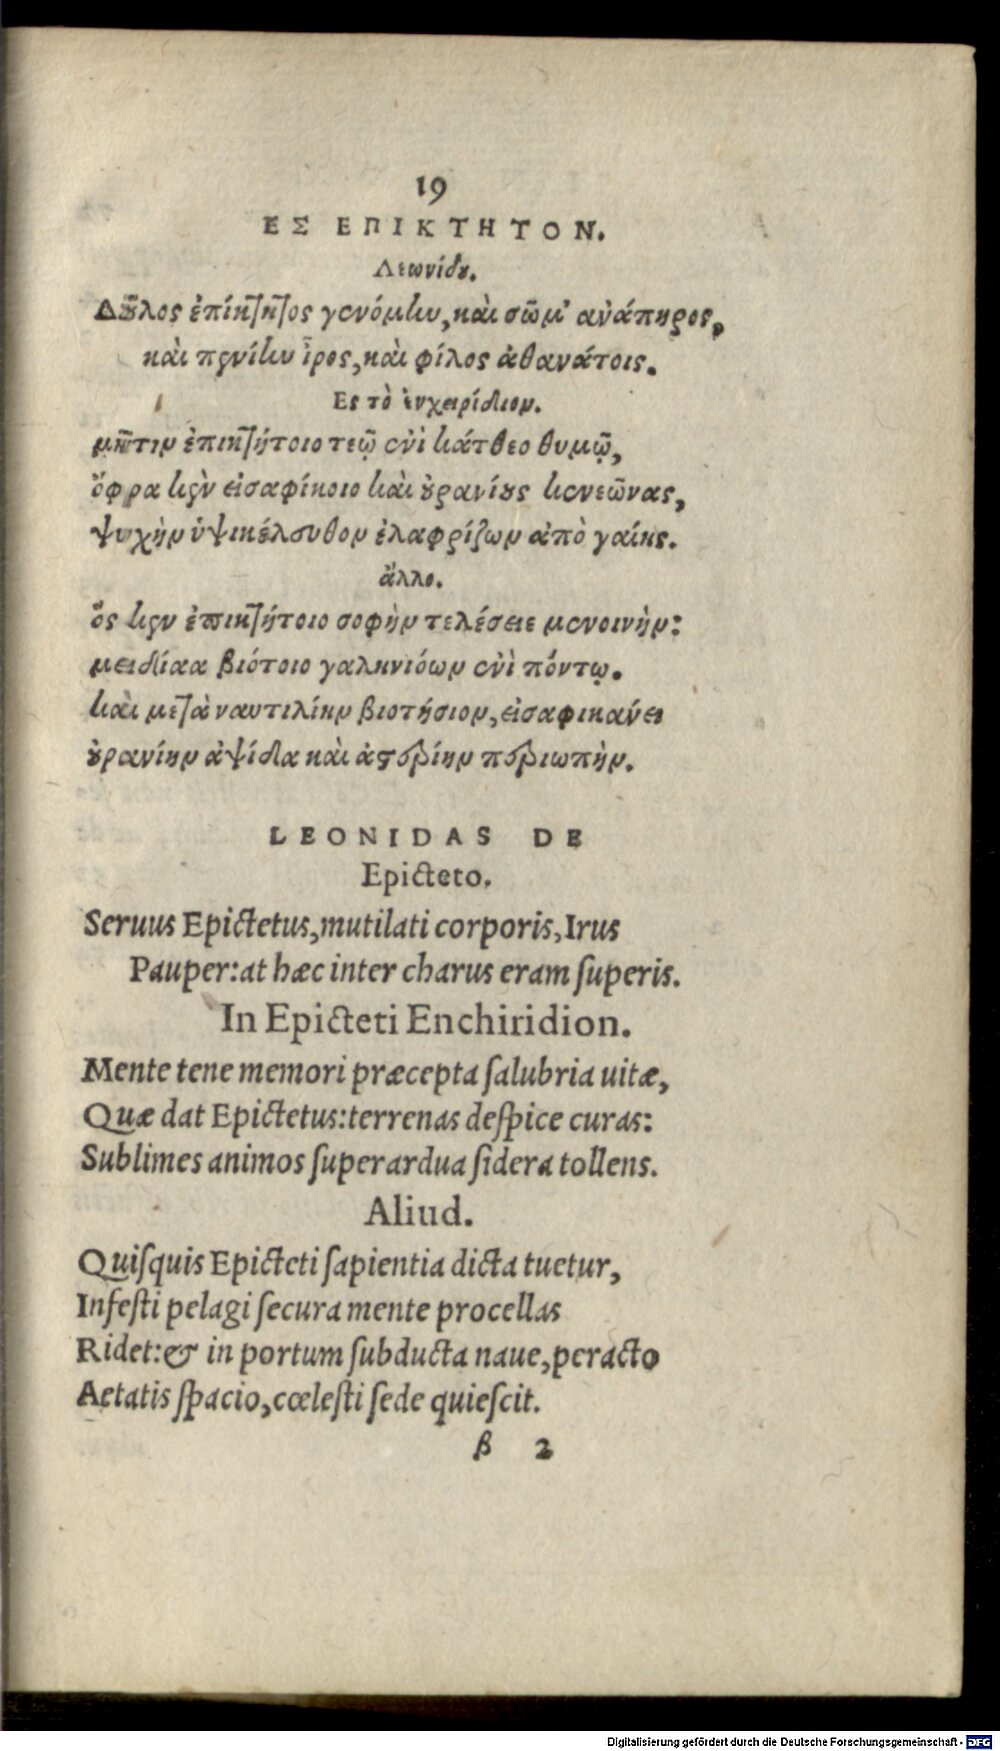 19
ΕΣ ΕΠΙΚΤΗΤΟΝ.
Λεωνίδου.
Δοῦλος ἐπίκτητος γενόμην, καὶ σῶμ' ἀνάπηρος,
καὶ πενίην ἶρος, καὶ φίλος ἀθανάτοις.
Ες τὸ ἐνχειρίδιον.
μῆτιν ἐπικτήτοιο τεῷ ἐνὶ κάτθεο θυμῷ,
ὄφρα κεν εἰσαφίκοιο καὶ οὐρανίους κενεῶνας,
ψυχὴν ὑψικέλευθον ἐλαφρίζων ἀπὸ γαίης.
ἄλλο.
ὅς κεν ἐπικτήτοιο σοφὴν τελέσειε μενοινὴν:
μειδιάα βιότοιο γαληνιόων ἐνὶ πόντῳ.
καὶ μετὰ ναυτιλίην βιοτήσιον, εἰσαφικανει
οὐρανίην ἀψίδα καὶ ἀστερίην περιωπὴν.
LEONIDAS DE
Epicteto.
Seruus Epictetus, mutilati corporis, Irus
Pauper: at hæc inter charus eram ſuperis.
In Epicteti Enchiridion.
Mente tene memori præcepta ſalubria uitæ,
Quæ dat Epictetus: terrenas deſpice curas:
Sublimes animos ſuper ardua ſidera tollens.
Aliud.
Quiſquis Epicteti ſapientia dicta tuetur,
Infeſti pelagi ſecura mente procellas
Ridet: & in portum ſubducta naue, peracto
Aetatis ſpacio, cœleſti ſede quieſcit.
β 2
Digitalisierung gefördert durch die Deutsche Forschungsgemeinschaft - DFG